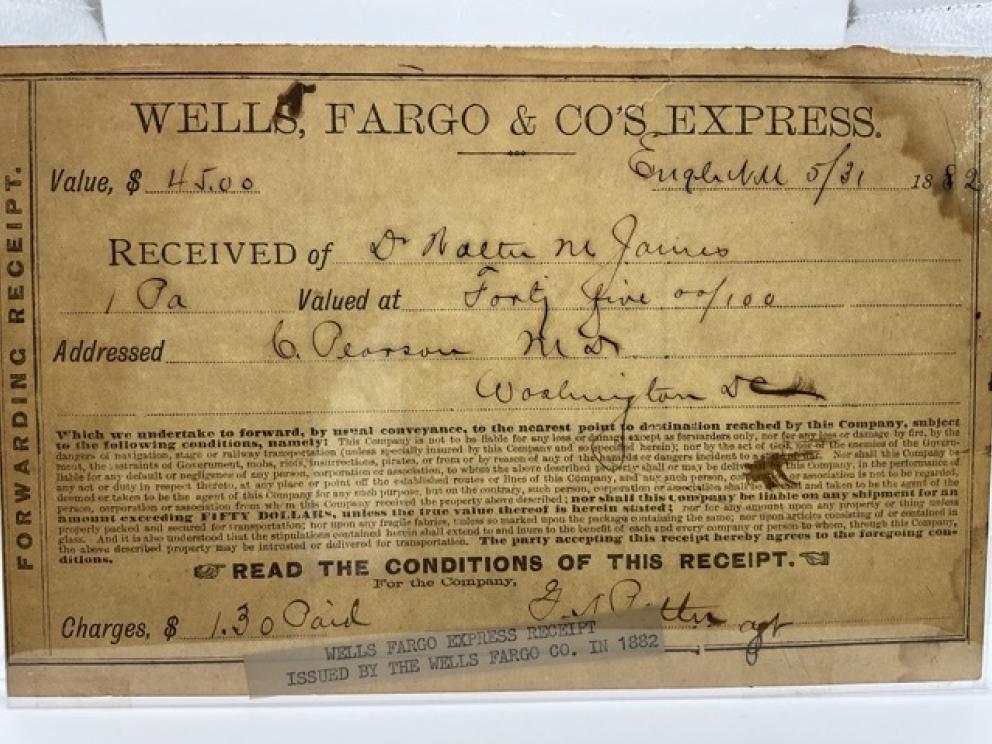 WELLS, FARGO & CO'S EXPRESS.
Value, $ 45.00 Engle N.M 5/31 1882
RECEIVED of Dr Walter M James
1 Pa Valued at Forty five 00/100
Addressed C. Pearson M D
Washington DC
FORWARDING RECEIPT.
Which we undertake to forward, by usual conveyance, to the nearest point to destination reached by this Company, subject
to the following conditions, namely: This Company is not to be liable for any loss or damage except as forwarders only, nor for any loss or damage by fire, by the
dangers of navigation, stage or railway transportation (unless specially insured by this Company and so specified herein); nor by the act of God, nor of the enemies of the Govern-
ment, the restraints of Government, mobs, riots, insurrections, pirates, or from or by reason of any of the hazards or dangers incident to a state of war. Nor shall this Company be
liable for any default or negligence of any person, corporation or association, to whom the above described property shall or may be delivered this Company, in the performance of
any act or duty in respect thereto, at any place or point off the established routes or lines of this Company, and any such person, corporation or association is not to be regarded
deemed or taken to be the agent of this Company for any such purpose, but on the contrary, such person, corporation or association shall and taken to be the agent of the
person, corporation or association from whom this Company received the property above described; nor shall this Company be liable on any shipment for an
amount exceeding FIFTY DOLLARS, unless the true value thereof is herein stated; nor for any amount upon any property or thing unless
properly packed and secured for transportation; nor upon any fragile fabrics, unless so marked upon the package containing the same; nor upon articles consisting of or contained in
glass. And it is also understood that the stipulations contained herein shall extend to and inure to the benefit of each and every company or person to whom, through this Company,
the above described property may be intrusted or delivered for transportation. The party accepting this receipt hereby agrees to the foregoing con-
ditions.
READ THE CONDITIONS OF THIS RECEIPT.
For the Company,
Charges, $ 1.30 Paid agt
WELLS FARGO EXPRESS RECEIPT
ISSUED BY THE WELLS FARGO CO. IN 1882